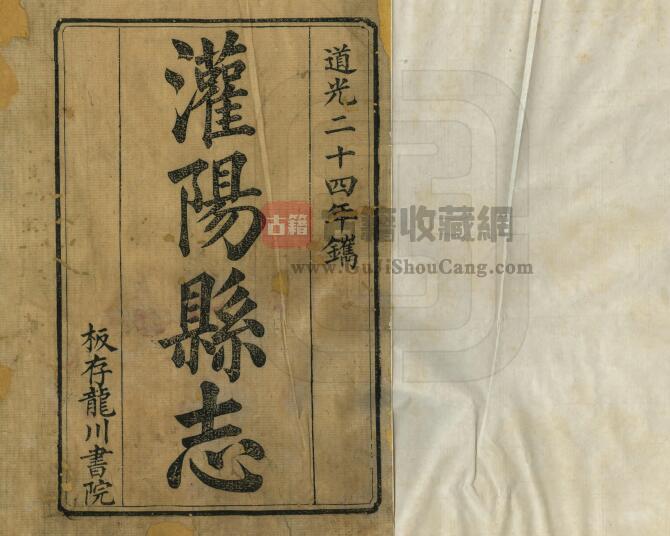 道光二十四年鐫
灌陽縣志
板存龍川書院
古籍
古籍收藏網
www.GuJiShouCang.com